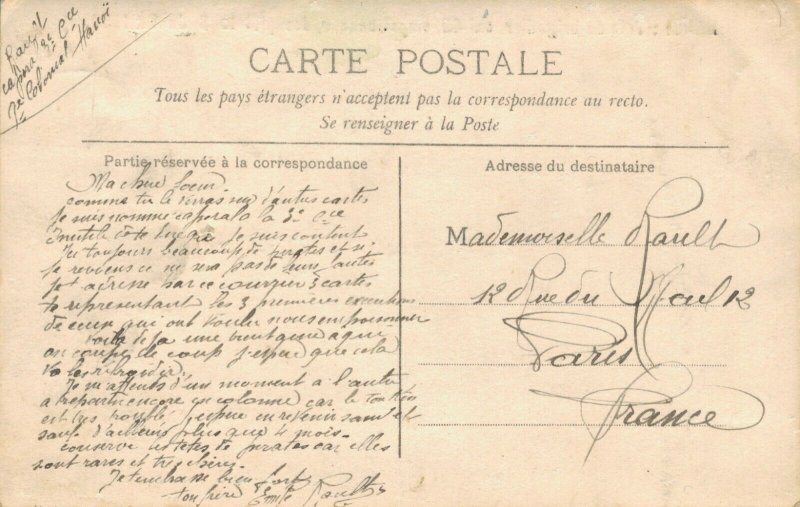 Rault
caporal 3e Cie
7e Colonial Hanoï
CARTE POSTALE
Tous les pays étrangers n'acceptent pas la correspondance au recto.
Se renseigner à la Poste
Partie réservée à la correspondance
Ma chère Soeur.
comme tu le verras sur d'autres cartes
je suis nommé caporal à la 3e Cie
Inutile de te dire que je suis content
J'ai toujours beaucoup de pirates et si
je reviens ce ne sera pas de leurs fautes
Je t'adresse par ce courrier 3 cartes
te représentant les 3 premières exécutions
de ceux qui ont voulu nous empoisonner
voilà déjà une trentaine à qui
on coupe le coup j'espère que cela
va les refroidir.
Je m'attends d'un moment à l'autre
à repartir encore en colonne car le tonkin
est très troublé j'espère en revenir sain et
sauf d'ailleurs plus que 4 mois.
conserve les têtes de pirates car elles
sont rares et très chères.
Je t'embrasse bien fort
ton frère Emile Rault
Adresse du destinataire
Mademoiselle Rault
12 Rue du 12
Paris
France